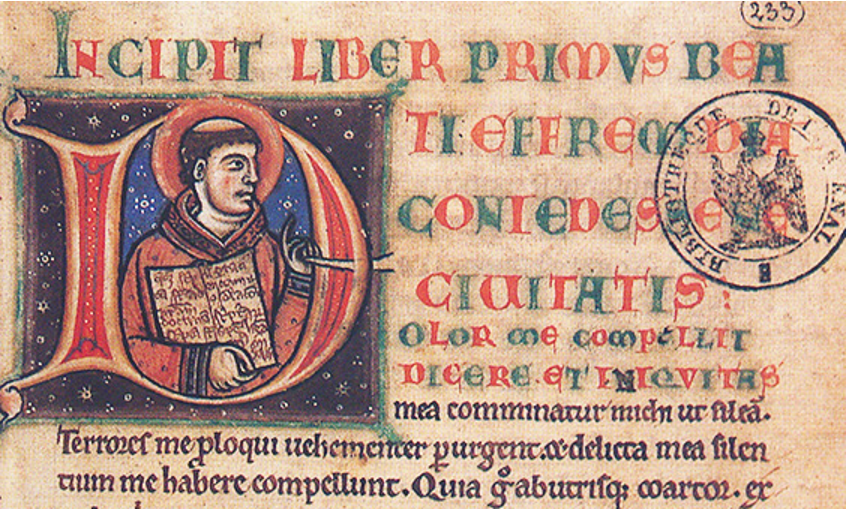 (233)
INCIPIT LIBER PRIMVS BEA
TI EFFREM DIA
CONI EDESSENE
CIUITATIS :
DOLOR ME COMPELLIT
DICERE ET INIQVITAS
mea comminatur michi ut sileā.
Terrores me ꝑloqui uehementer ꝑurgent. & delicta mea silen
tium me habere compellunt. Quia gͦ abutrisq; coartor. ex
BIBLIOTHEQUE DE L'ARSENAL